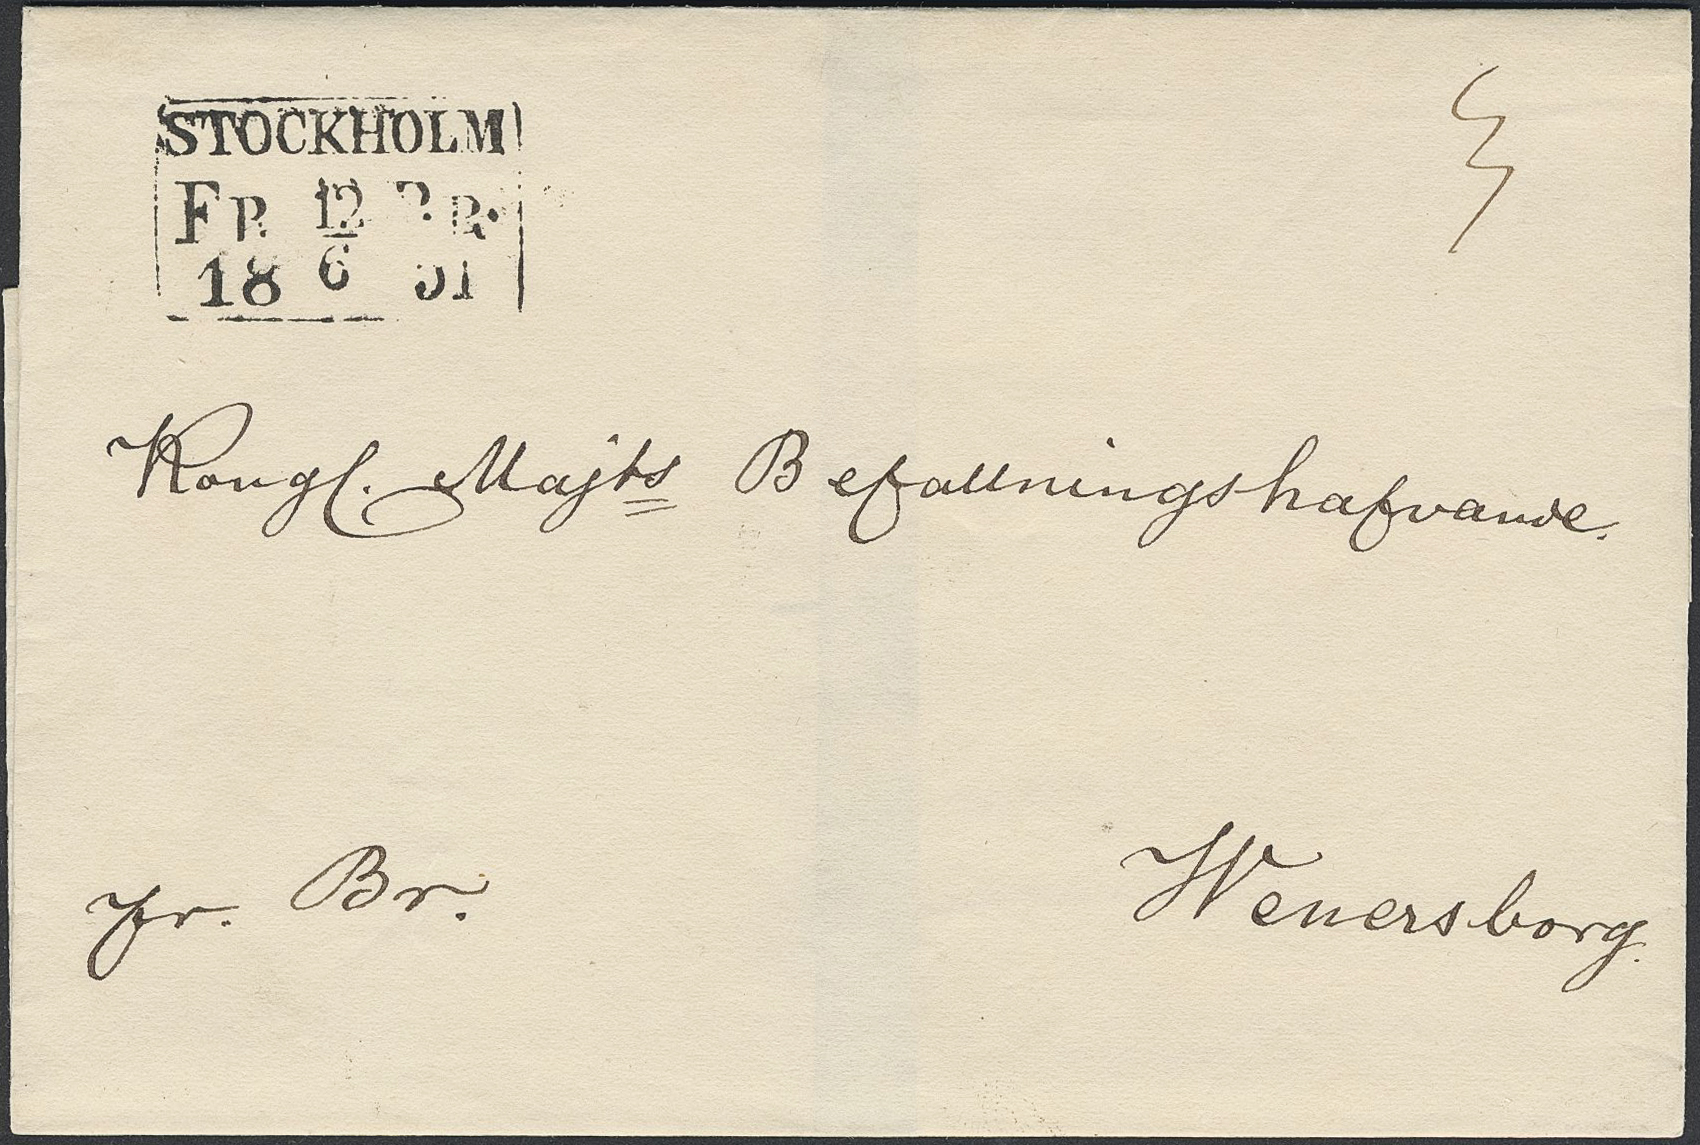 STOCKHOLM
FR. 12 BR.
18 6 51
Kongl. Majts Befallningshafvande.
fr. Br.
Wenersborg.